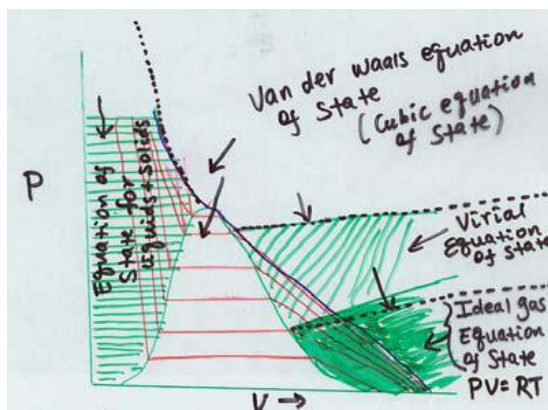 Van der waals equation
of State
(Cubic equation
of State)
P
Equation of
State for
liquids + Solids
Virial
Equation
of State
Ideal gas
Equation
of State
PV = RT
V →